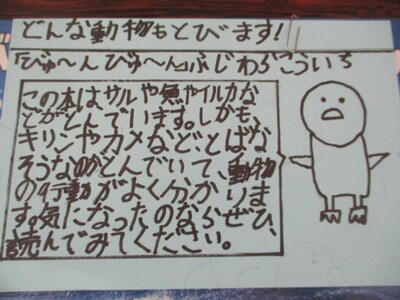 どんな動物もとびます!
「びゅ〜んびゅ〜ん」ふじわらこういち
この本はサルや魚やイルカな
どがとんでいます。しかも、
キリンやカメなどとばな
そうなのがとんでいて、動物
の行動がよく分かりま
す。気になったのならぜひ、
読んでみてください。